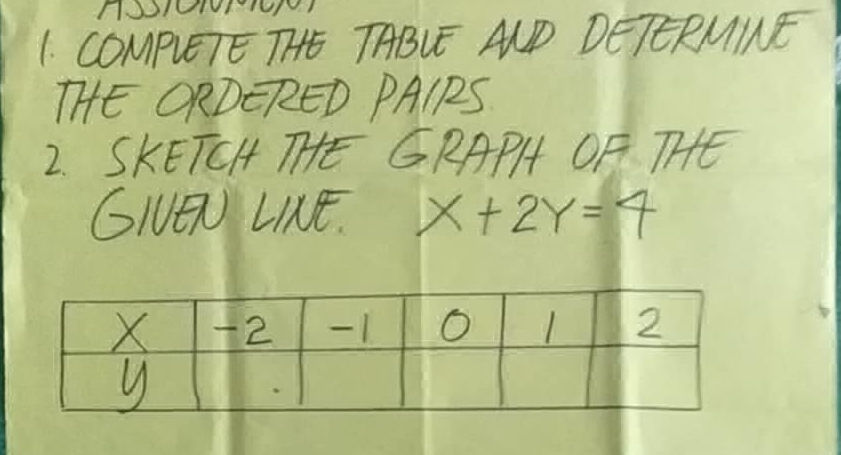 ASSIGNMENT
1. COMPLETE THE TABLE AND DETERMINE
THE ORDERED PAIRS
2. SKETCH THE GRAPH OF THE
GIVEN LINE. X + 2Y = 4
X -2 -1 0 1 2
y